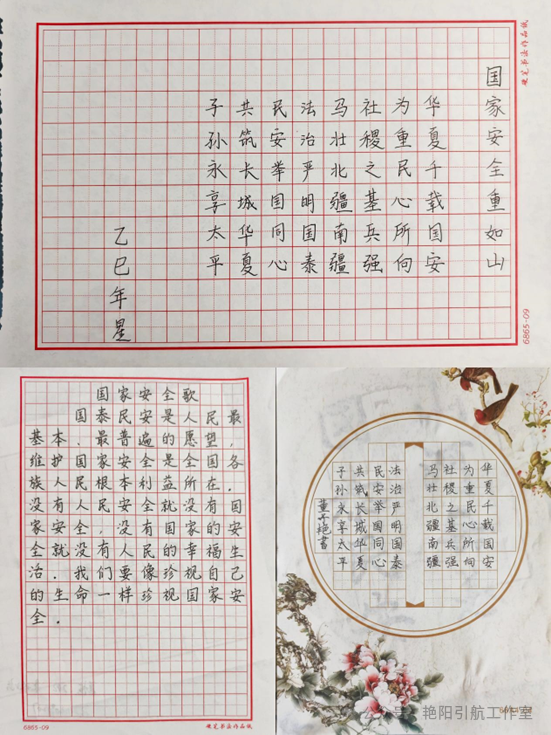 国家安全重如山
华夏千载国安
为重民心所向
社稷之基兵强
马壮北疆南疆
法治严明国泰
民安举国同心
共筑长城华夏
子孙永享太平
乙巳年星
硬笔书法作品纸
6865-09
国家安全歌
国泰民安是人民最
基本，最普遍的愿望，
维护国家安全是全国各
族人民根本利益所在，
没有人民安全就没有国
家安全，没有国家的安
全就没有人民的幸福生
活，我们要像珍视自己
的生命一样珍视国家安
全。
6865-09
硬笔书法作品纸
华夏千载国安
为重民心所向
社稷之基兵强
马壮北疆南疆
法治严明国泰
民安举国同心
共筑长城华夏
子孙永享太平
公众号 · 艳阳引航工作室